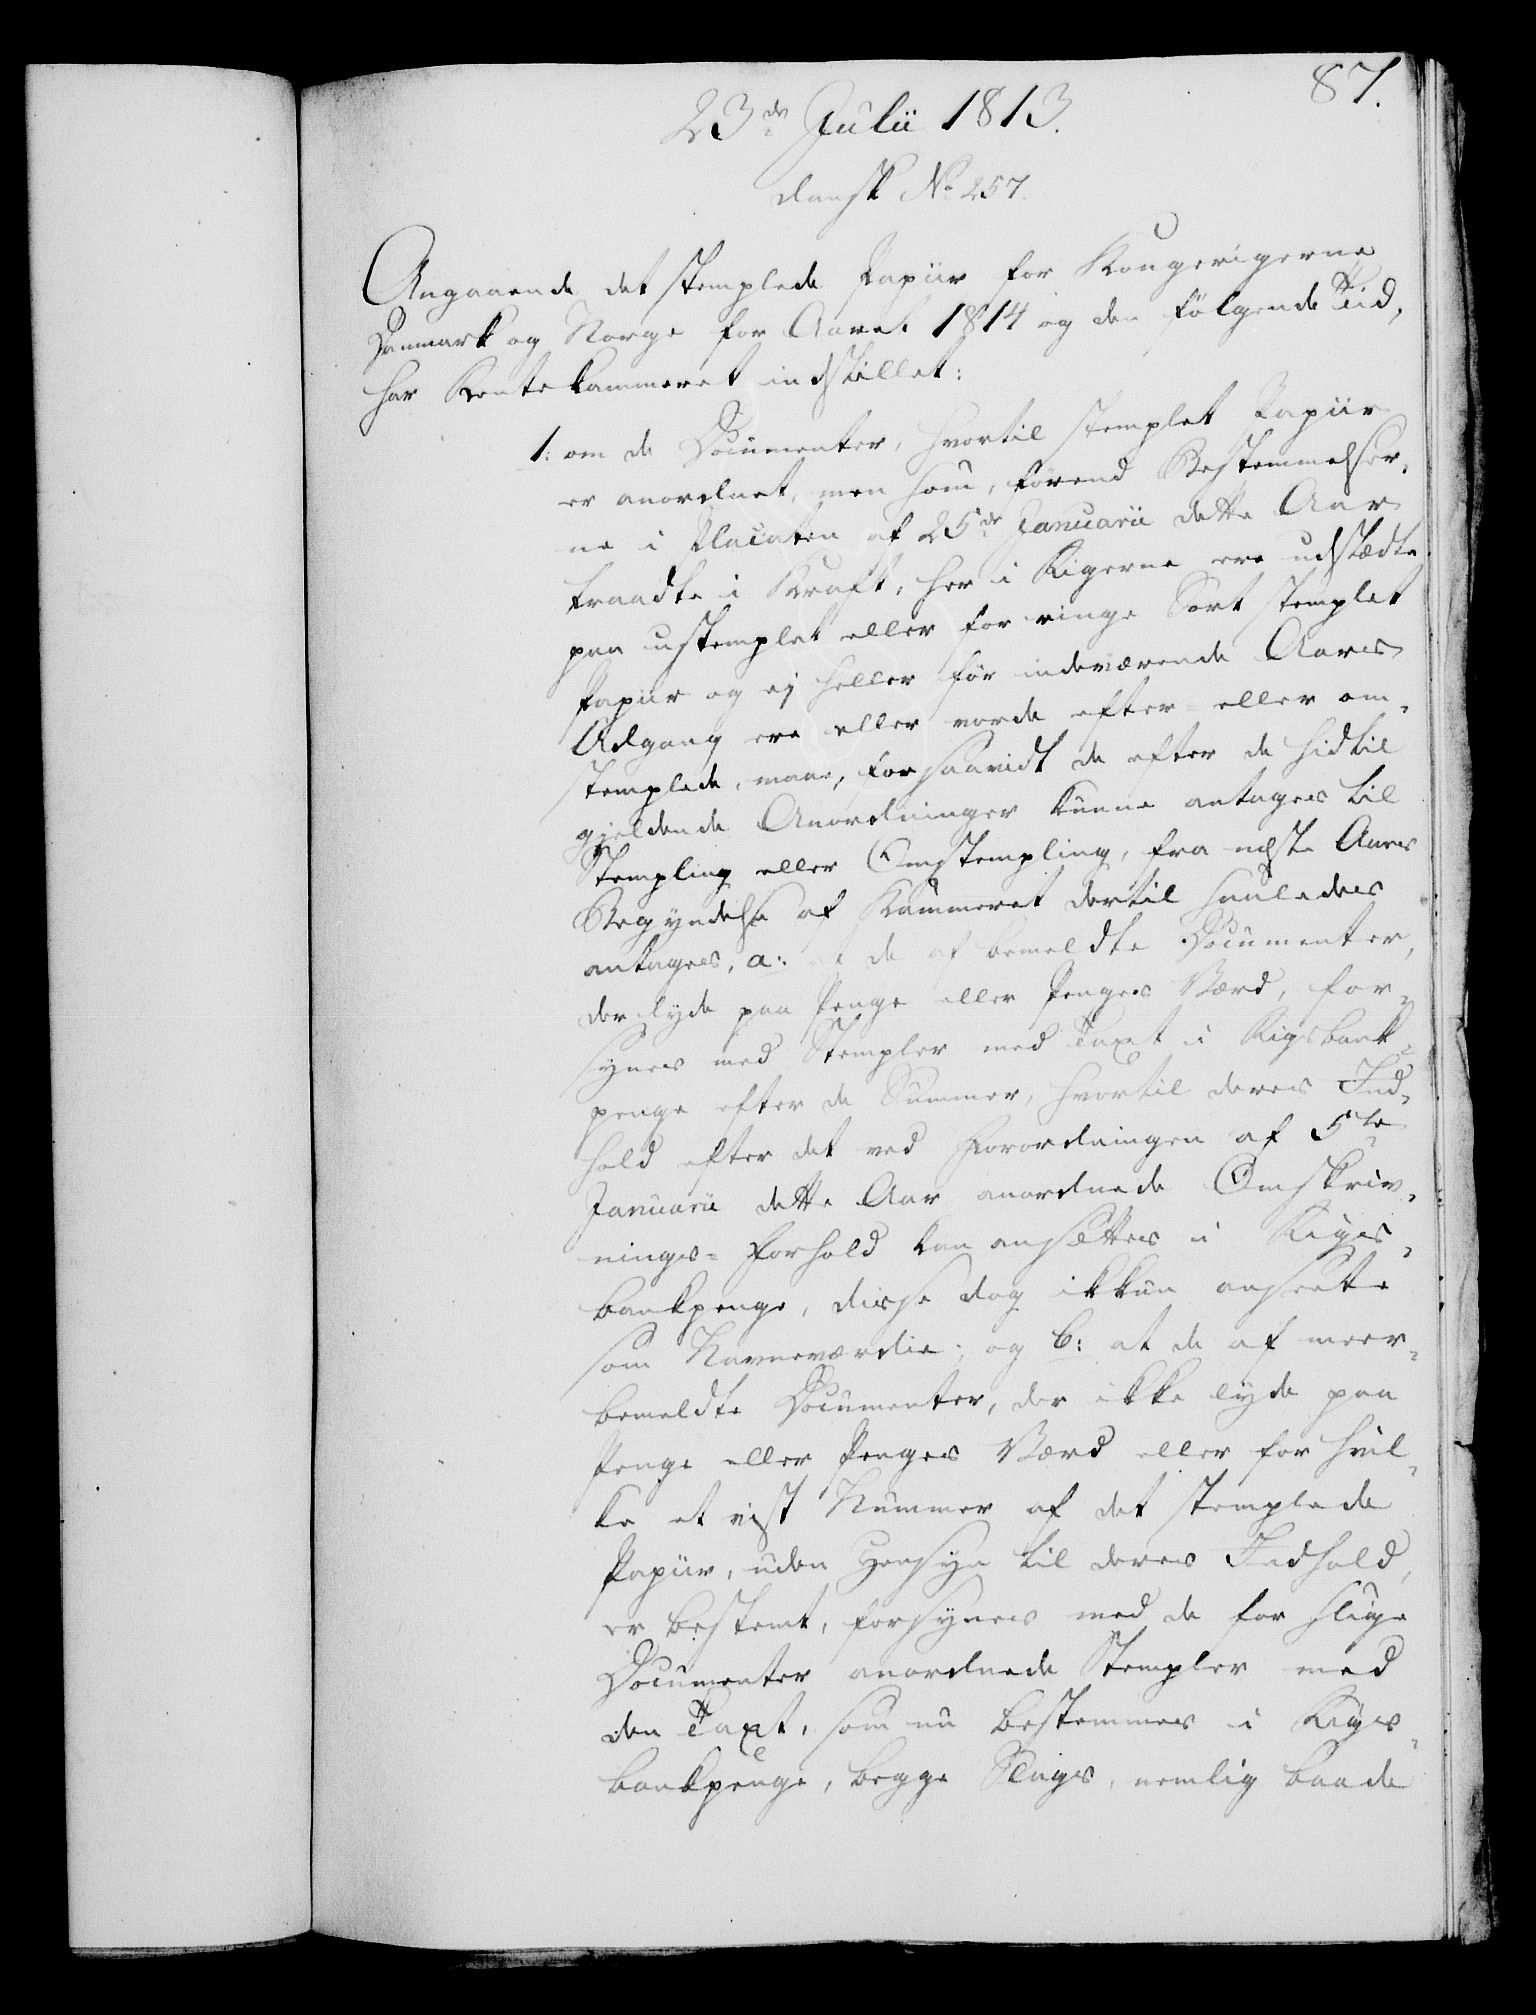 87.
23de Julii 1813.
dansk No 257.
Angaaende det stemplede Papiir for Kongerigerne
Danmark og Norge for Aaret 1814 og den følgende Tid,
har Rentekammeret indstillet:
1: om de Documenter, hvortil stemplet Papiir
er anordnet, men som, førend Bestemmelser-
ne i Placaten af 25de Januarii dette Aar
traadte i Kraft, her i Rigerne ere udstædte
paa ustemplet eller for ringe Sort stemplet
Papiir og ej heller før indeværende Aars
Udgang ere eller vorde efter- eller om-
stemplede, maae, forsaavidt de efter de hidtil
gjeldende Anordninger kunne antages til
Stempling eller Omstempling, fra næste Aars
Begyndelse af Kammeret dertil saaledes
antages, a: at de af bemeldte Documenter,
der lyde paa Penge eller Penges Værd, for-
synes med Stempler med Taxt i Rigsbank-
penge efter de Summer, hvortil deres Ind-
hold efter det ved Forordningen af 5te
Januarii dette Aar anordnede Omskriv-
nings-Forhold kan ansættes i Rigs-
bankpenge, disse dog ikkun ansete
som Navneværdie; og b: at de af meer-
bemeldte Documenter, der ikke lyde paa
Penge eller Penges Værd eller for hvil-
ke et vist Nummer af det stemplede
Papiir, uden Hensyn til deres Indhold,
er bestemt, forsynes med de for slige
Documenter anordnede Stempler med
den Taxt, som nu bestemmes i Rigs-
bankpenge, begge Slags, nemlig baade